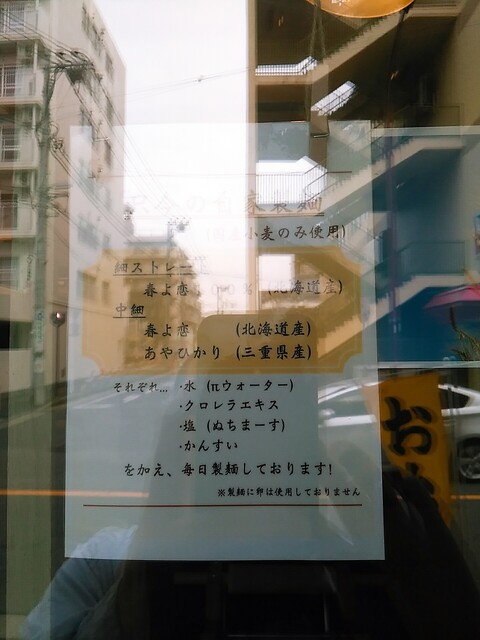 小麦のみ使用)
細ストレート
春よ恋 100% (北海道産)
中細
春よ恋 (北海道産)
あやひかり (三重県産)
それぞれ… ・水 (πウォーター)
・クロレラエキス
・塩 (ぬちまーす)
・かんすい
を加え、毎日製麺しております!
※製麺に卵は使用しておりません
お